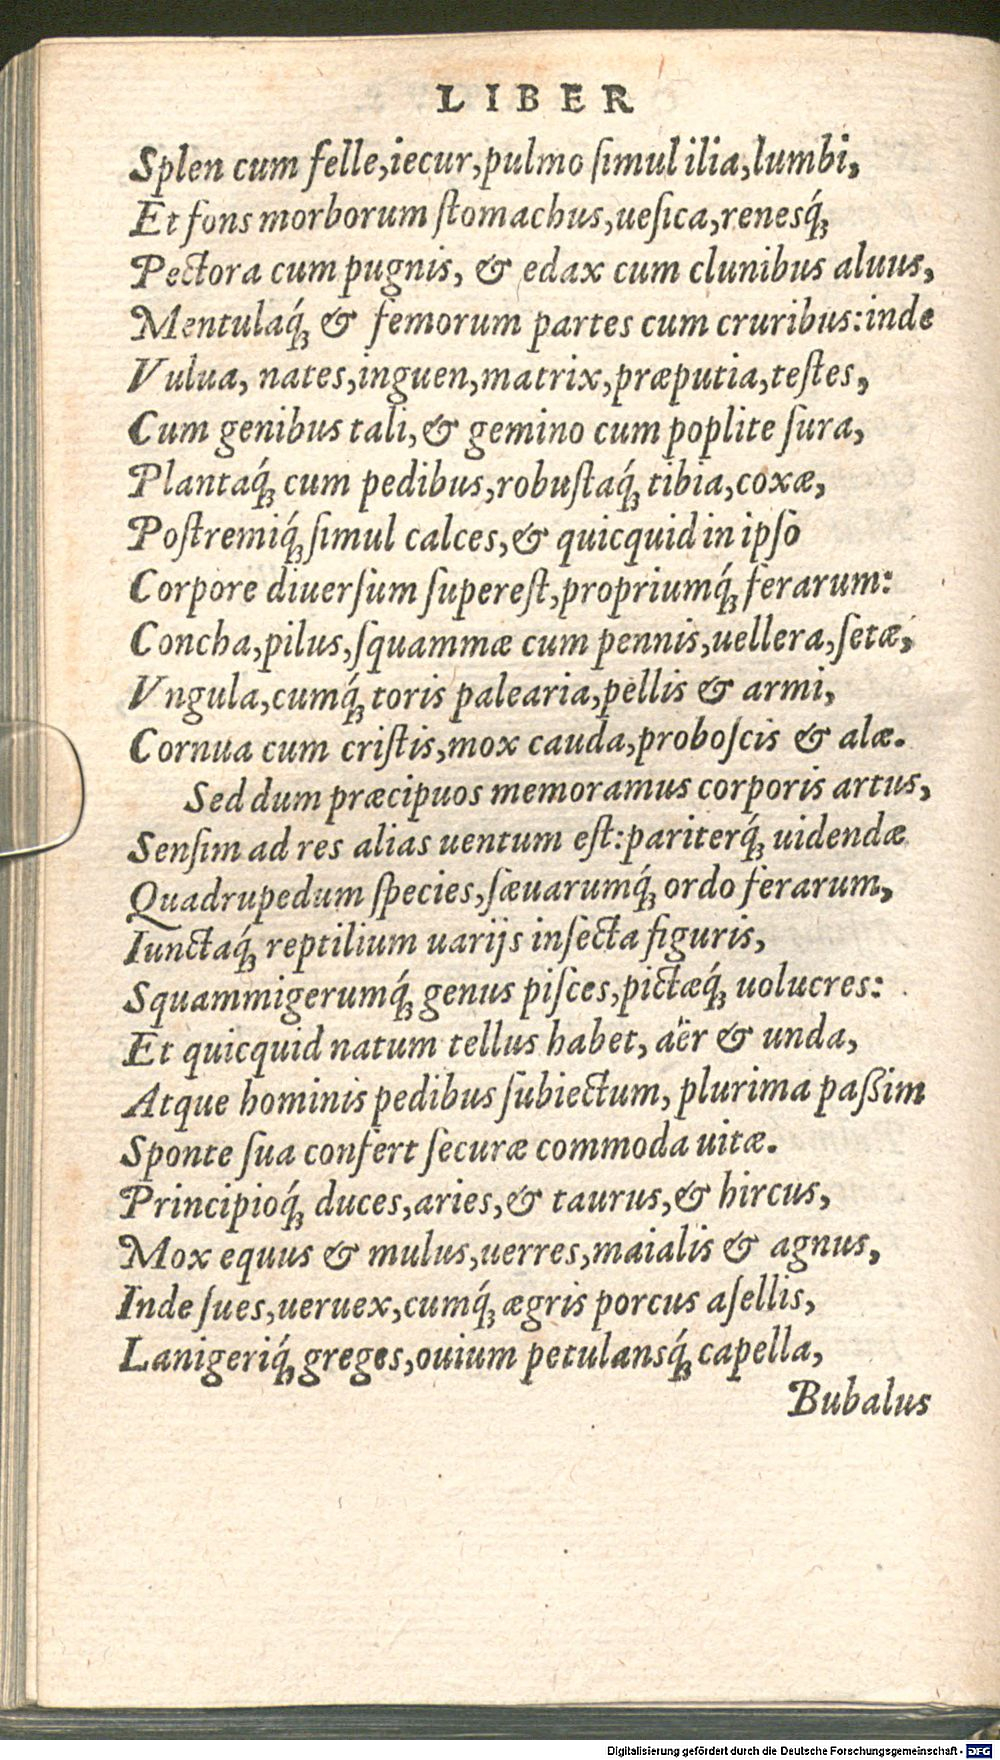 LIBER
Splen cum felle,iecur,pulmo ſimul ilia,lumbi,
Et fons morborum ſtomachus,ueſica,renesq́;
Pectora cum pugnis, & edax cum clunibus aluus,
Mentulaq́; & femorum partes cum cruribus:inde
Vulua, nates,inguen,matrix,præputia,teſtes,
Cum genibus tali,& gemino cum poplite ſura,
Plantaq́; cum pedibus,robuſtaq́; tibia,coxæ,
Poſtremiq́; ſimul calces,& quicquid in ipſo
Corpore diuerſum ſupereſt,propriumq́; ferarum:
Concha,pilus,ſquammæ cum pennis,uellera,ſetæ,
Vngula,cumq́; toris palearia,pellis & armi,
Cornua cum criſtis,mox cauda,proboſcis & alæ.
Sed dum præcipuos memoramus corporis artus,
Senſim ad res alias uentum eſt:pariterq́; uidendæ
Quadrupedum ſpecies,ſæuarumq́; ordo ferarum,
Iunctaq́; reptilium uarijs inſecta figuris,
Squammigerumq́; genus piſces,pictæq́; uolucres:
Et quicquid natum tellus habet, aër & unda,
Atque hominis pedibus ſubiectum, plurima paſsim
Sponte ſua confert ſecuræ commoda uitæ.
Principioq́; duces,aries,& taurus,& hircus,
Mox equus & mulus,uerres,maialis & agnus,
Inde ſues,ueruex,cumq́; ægris porcus aſellis,
Lanigeriq́; greges,ouium petulansq́; capella,
Bubalus
Digitalisierung gefördert durch die Deutsche Forschungsgemeinschaft - DFG